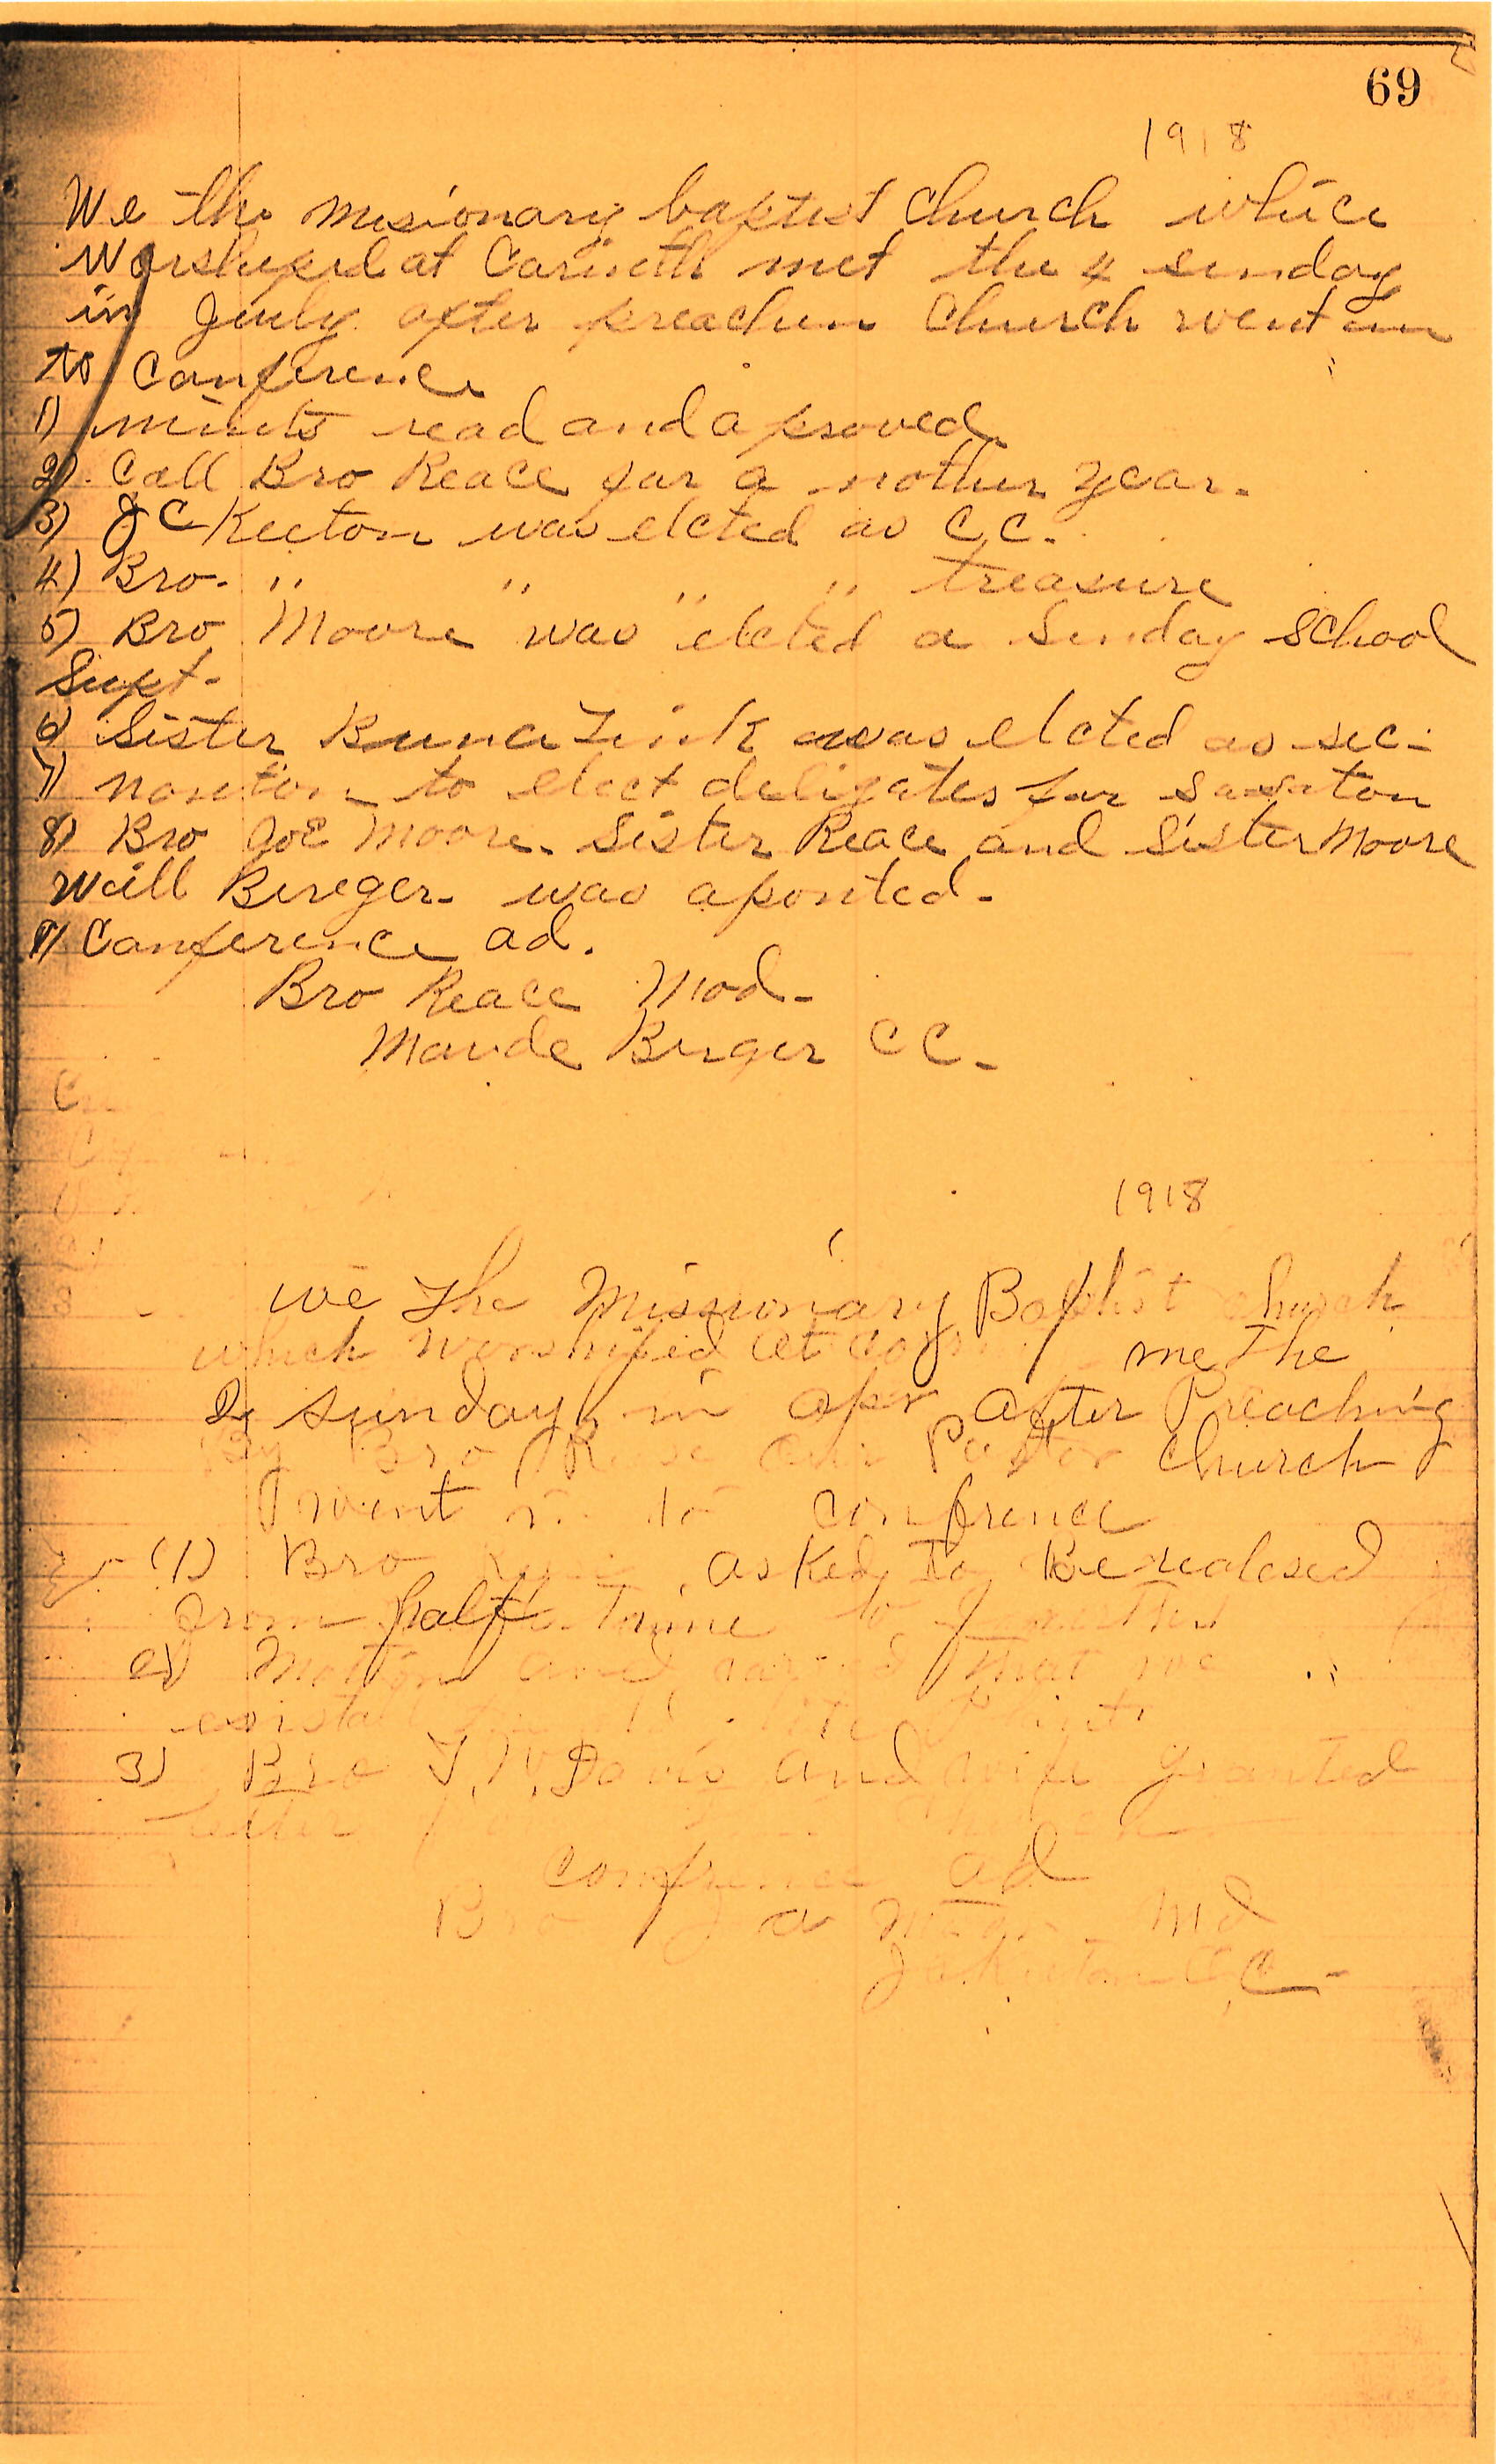 69
1918
We the misionary baptist church whice
Worshiped at Corinth met the 4 sunday
in July after preachen Church went in
to Conference
1) minits read and aproved
2) Call Bro Reace for a nother year.
3) J C Keeton was elcted as C C.
4) Bro. " " " " treasure
5) Bro Moore was elcted a Sunday School
Supt.
6) Sister was elcted as sec.
7) to elect deligates for
8) Bro Joe Moore. Sister Reace and Sister Moore
Will Burger. was aponted.
9) Conference ad.
Bro Reace Mod.
Maude Burger CC.
1918
we the Missionary Baptist church
which worshiped at me the
2 sunday in apr after Preaching
By Bro our Pastor church
went in to confrence
(1) Bro asked to Be realesed
from half time to
2) Motion and that we
3) Bro Davis and wife granted
letter church
confrence ad
Bro Md
J C Keeton C C.